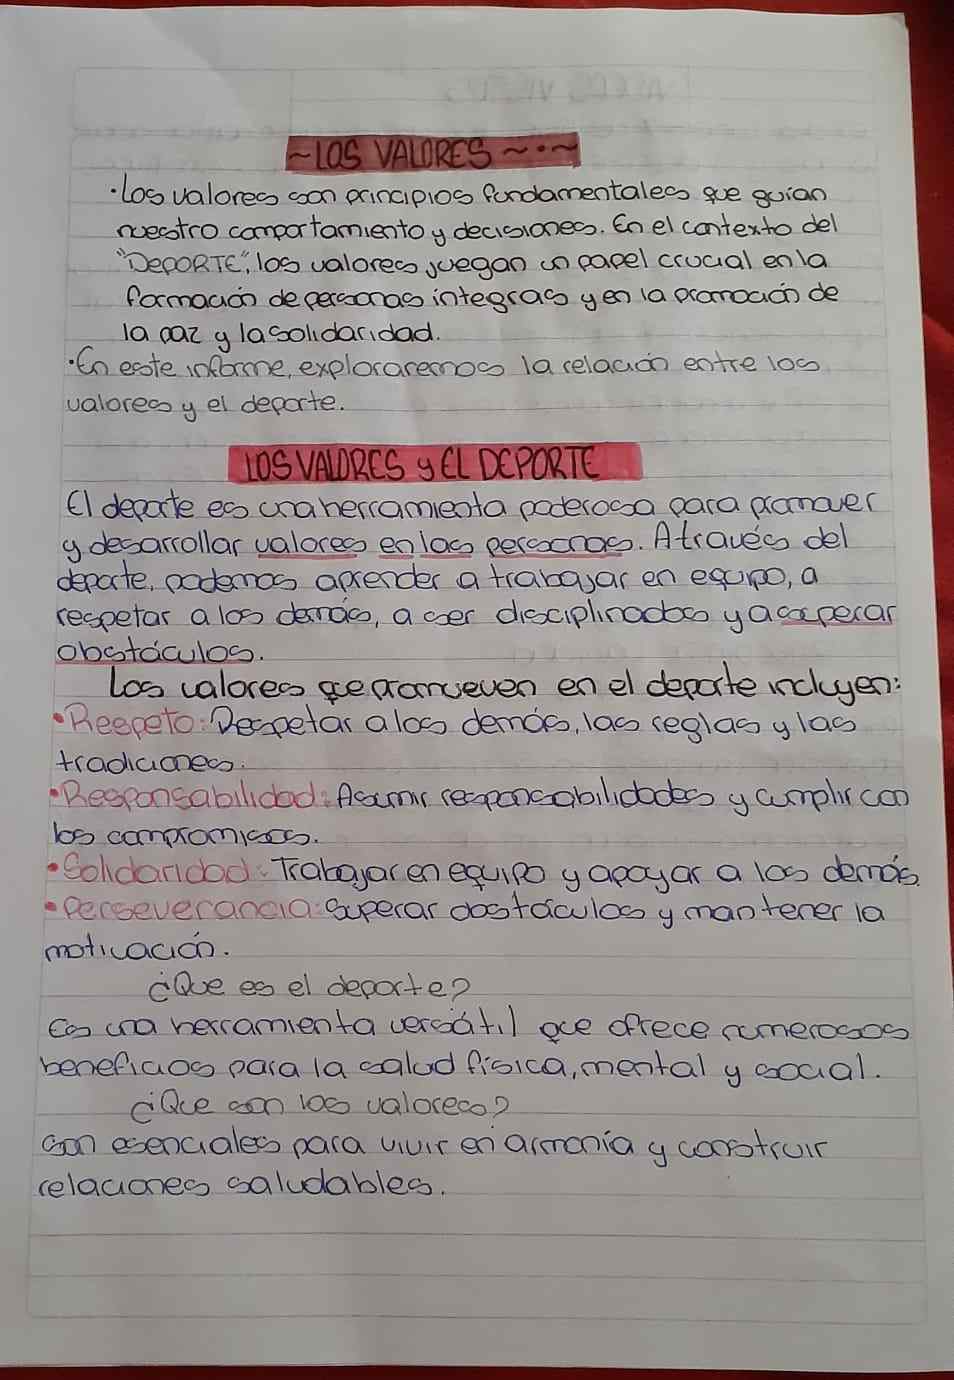 ~LOS VALORES ~·~
·Los valores son principios fundamentales que guian
nuestro comportamiento y decisiones. En el contexto del
"DEPORTE", los valores juegan un papel crucial en la
formación de personas integras y en la promoción de
la paz y la solidaridad.
·En este informe, exploraremos la relación entre los
valores y el deporte.
LOS VALORES y EL DEPORTE
El deporte es una herramienta poderosa para promover
y desarrollar valores en las personas. A través del
deporte, podemos aprender a trabajar en equipo, a
respetar a los demás, a ser disciplinados y a superar
obstáculos.
Los valores que promueven en el deporte incluyen:
·Respeto: Respetar a los demás, las reglas y las
tradiciones.
·Responsabilidad: Asumir responsabilidades y cumplir con
los compromisos.
·Solidaridad: Trabajar en equipo y apoyar a los demás.
·Perseverancia: Superar obstáculos y mantener la
motivación.
¿Que es el deporte?
Es una herramienta versátil que ofrece numerosos
beneficios para la salud física, mental y social.
¿Que son los valores?
son esenciales para vivir en armonía y construir
relaciones saludables.